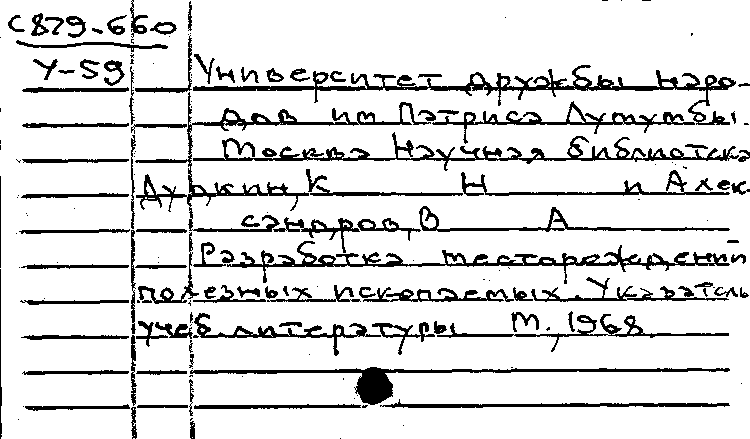 С879-660
У-59
Университет дружбы наро-
дов им Патриса Лумумбы.
Москва Научная библиотека
Дудкин, К Н и Алек
сандров, В А
Разработка месторождений
полезных ископаемых. Указатель
учеб. литературы М., 1968